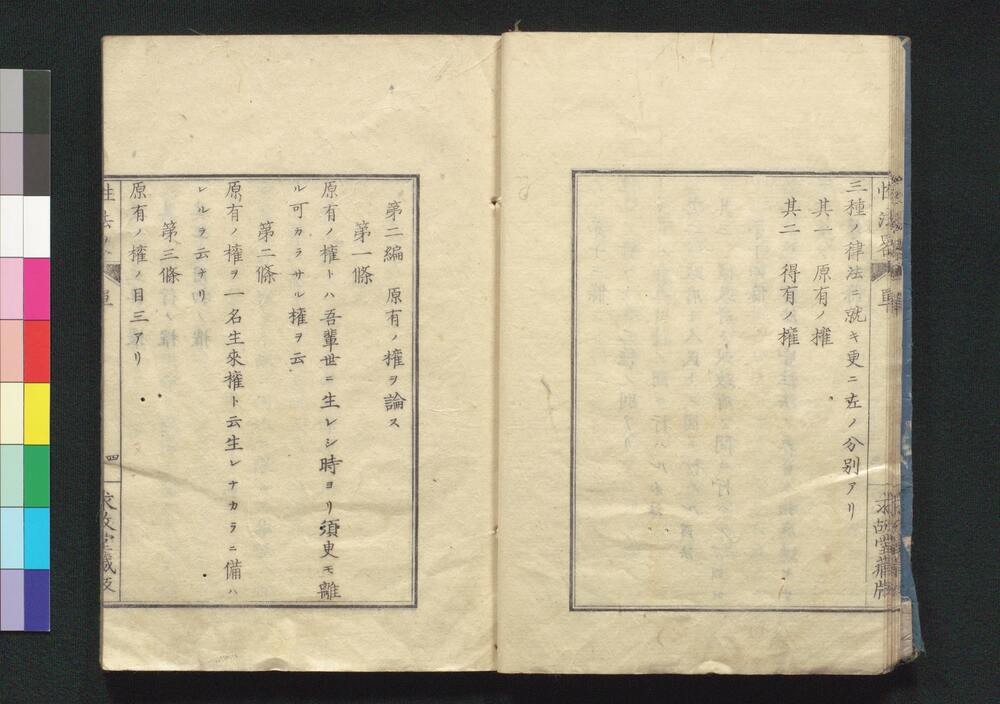 三種ノ律法ニ就キ更ニ左ノ分別アリ
其一　原有ノ權
其二　得有ノ權
第二編　原有ノ權ヲ論ス
第一條
原有ノ權トハ吾輩世ニ生レシ時ヨリ須臾モ離
ル可カラサル權ヲ云
第二條
原有ノ權ヲ一名生來權ト云生レナカラニ備ハ
レルヲ云ナリ
第三條
原有ノ權ノ目三アリ
性法
單
四
求故堂藏版